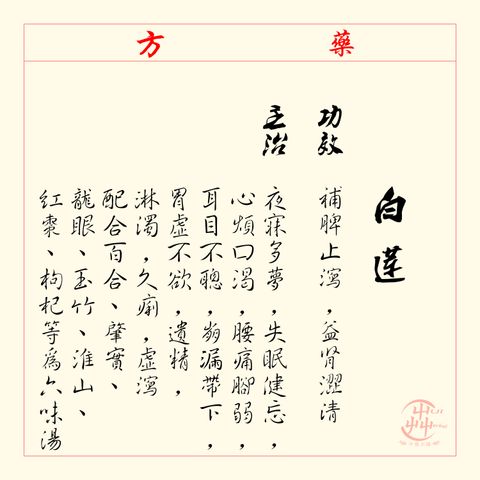 藥方
白蓮
功效
補脾止瀉，益腎澀清
主治
夜寐多夢，失眠健忘，
心煩口渴，腰痛腳弱，
耳目不聰，崩漏帶下，
胃虛不欲，遺精，
淋濁，久痢，虛瀉
配合百合、肇實、
龍眼、玉竹、淮山、
紅棗、枸杞等為六味湯